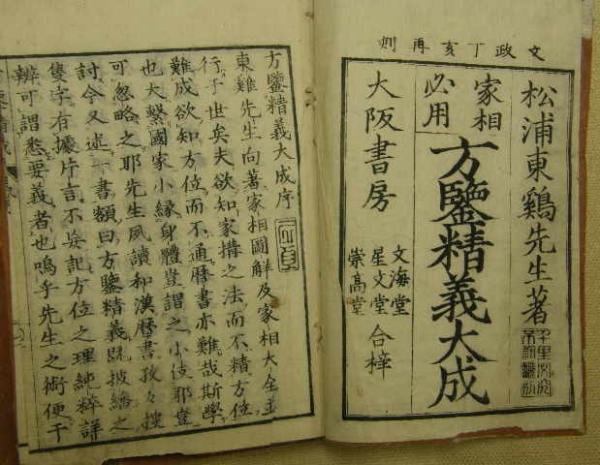 文政丁亥再刻
松浦東鷄先生著
家相
必用
方鑒精義大成
大阪書房
文海堂
星文堂
崇高堂
合梓
方鑒精義大成序
東雞先生向著家相圖解及家相大全並
行于世矣夫欲知家搆之法而不精方位
難成欲知方位而不通曆書亦難哉斯學
也大繫國家小縁身體豈謂之小伎邪豈
可忽略之耶先生夙讀和漢曆書孜々捜
討今又述一書額曰方鑒精義既披繙之
隻字有據片言不妄記方位之理純粹詳
辨可謂悉要義者也嗚乎先生之術便于